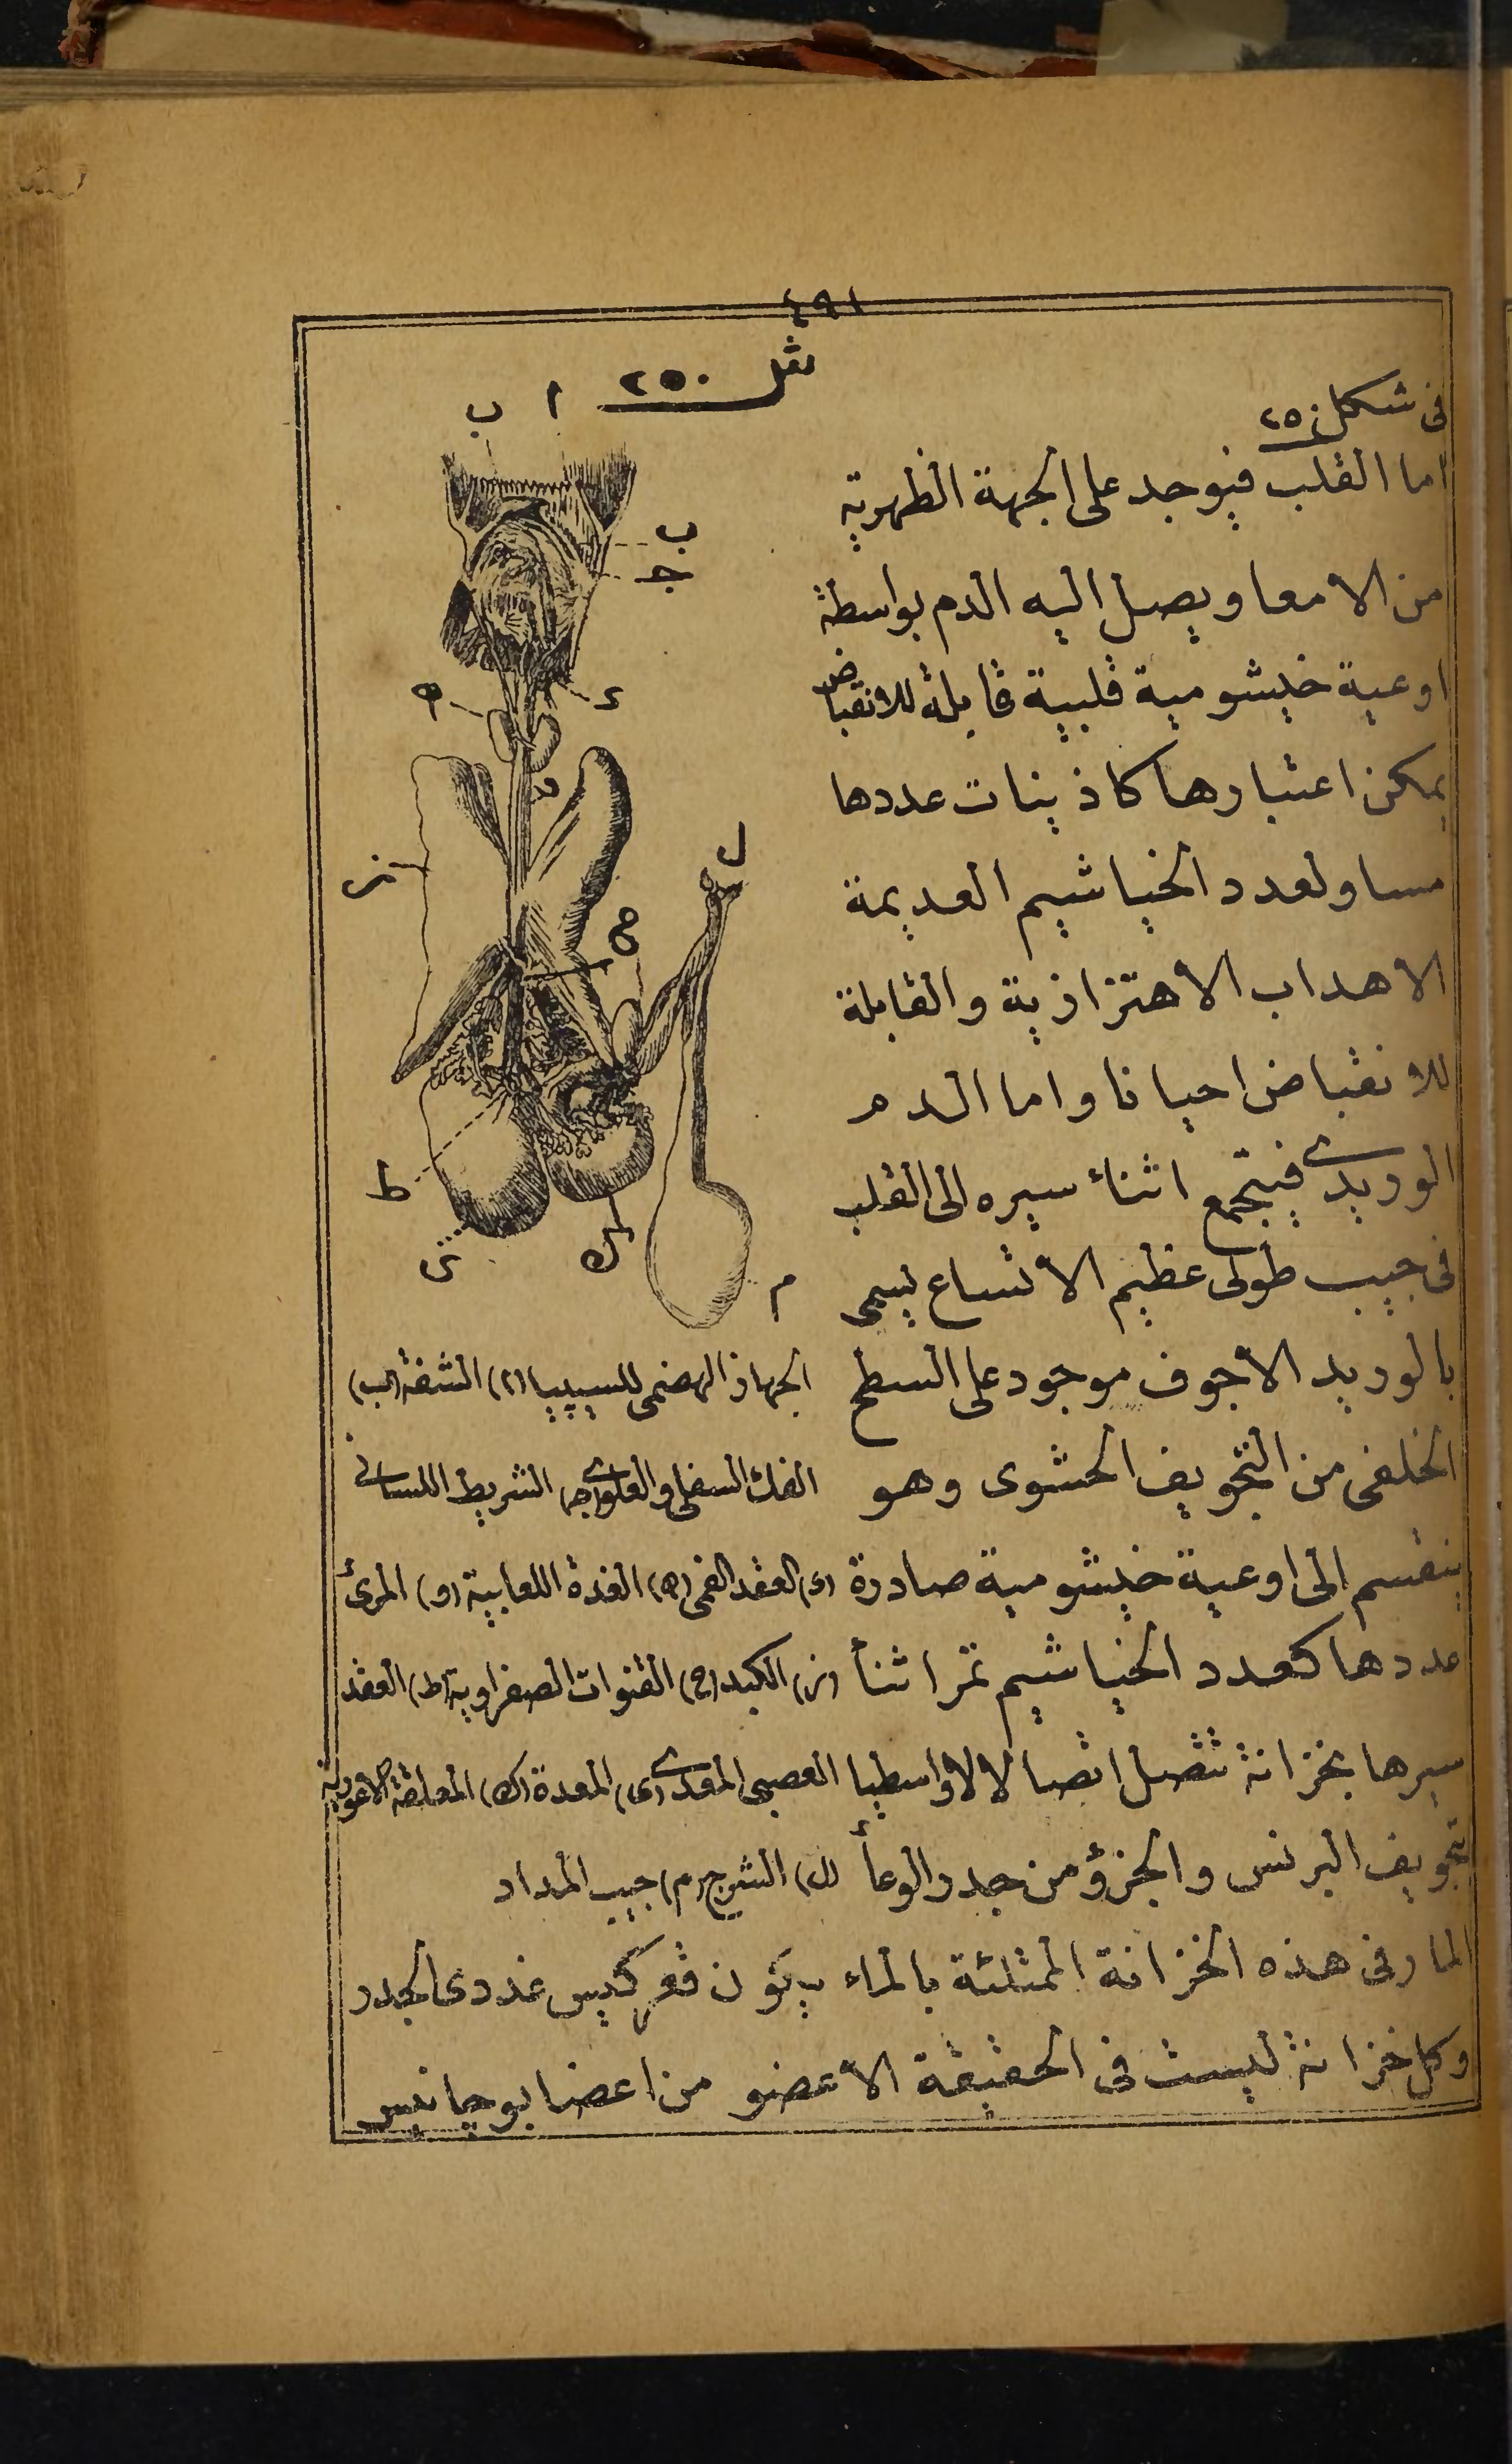 ٤٩١
شكل ٢٥٠
ا ب
ب
ج
د
ه
و
ز
ل
ح
ط
ى
ك
م
فى شكل ٢٥٠
اما القلب فيوجد على الجهة الظهرية
من الامعا ويصل اليه الدم بواسطة
اوعية خيشومية قلبية قابلة للانقباض
يمكن اعتبارها كاذينات عددها
مساو لعدد الخياشيم العديمة
الاهداب الاهتزازية والقابلة
للانقباض احيانا واما الدم
الوريدى فيتجمع اثناء سيره الى القلب
فى جيب طولى عظيم الاتساع يسمى
بالوريد الاجوف موجود على السطح
الخلفى من التجويف الحشوى وهو
ينقسم الى اوعية خيشومية صادرة
عددها كعدد الخياشيم تمر اثنأ
سيرها بخزانة تتصل اتصالا لا واسطيا
تجويف البرنس والجزؤ من جدر الوعأ
المار فى هذه الخزانة الممتلئة بالماء يكون كيس غددى الجدر
وكل خزانة ليست فى الحقيقة الا عضو من اعضا بوجانيس
الجهاز الهضمى للسيپيا (ا) الشفة (ب)
الفك السفلى والعلوى (ج) الشريط اللسانى
(د) العقد الفمى (ه) الغدة اللعابية (و) المرئ
(ز) الكبد (ح) القنوات الصفراوية (ط) العقد
العصبى المعدى (ى) المعدة (ك) المعلقة الاعورية
(ل) الشرج (م) جيب المداد